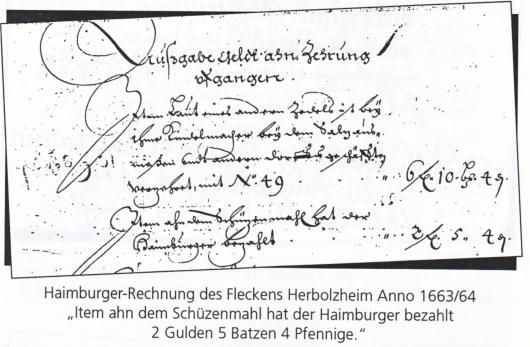 Außgabe Geldt ahn Zehrung
Item Laut eines andern Zedels ist bey
bey dem
und andern
verzehret, mit No 49 " 6 fl 10 bz 4 d.
Item ahn dem Schüzenmahl hat der
Haimburger bezahlt " 2 fl 5 " 4 d.
Haimburger-Rechnung des Fleckens Herbolzheim Anno 1663/64
„Item ahn dem Schüzenmahl hat der Haimburger bezahlt
2 Gulden 5 Batzen 4 Pfennige.“